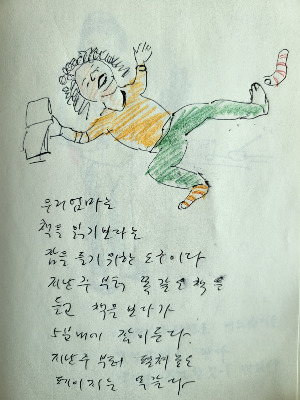 우리엄마는
책을 읽기보다는
잠을 들기 위한 도구이다
지난주 부터 똑같은 책을
들고 책을 보다가
5분내에 잠이든다.
지난주 부터 펼쳐놓은
페이지는 똑같다